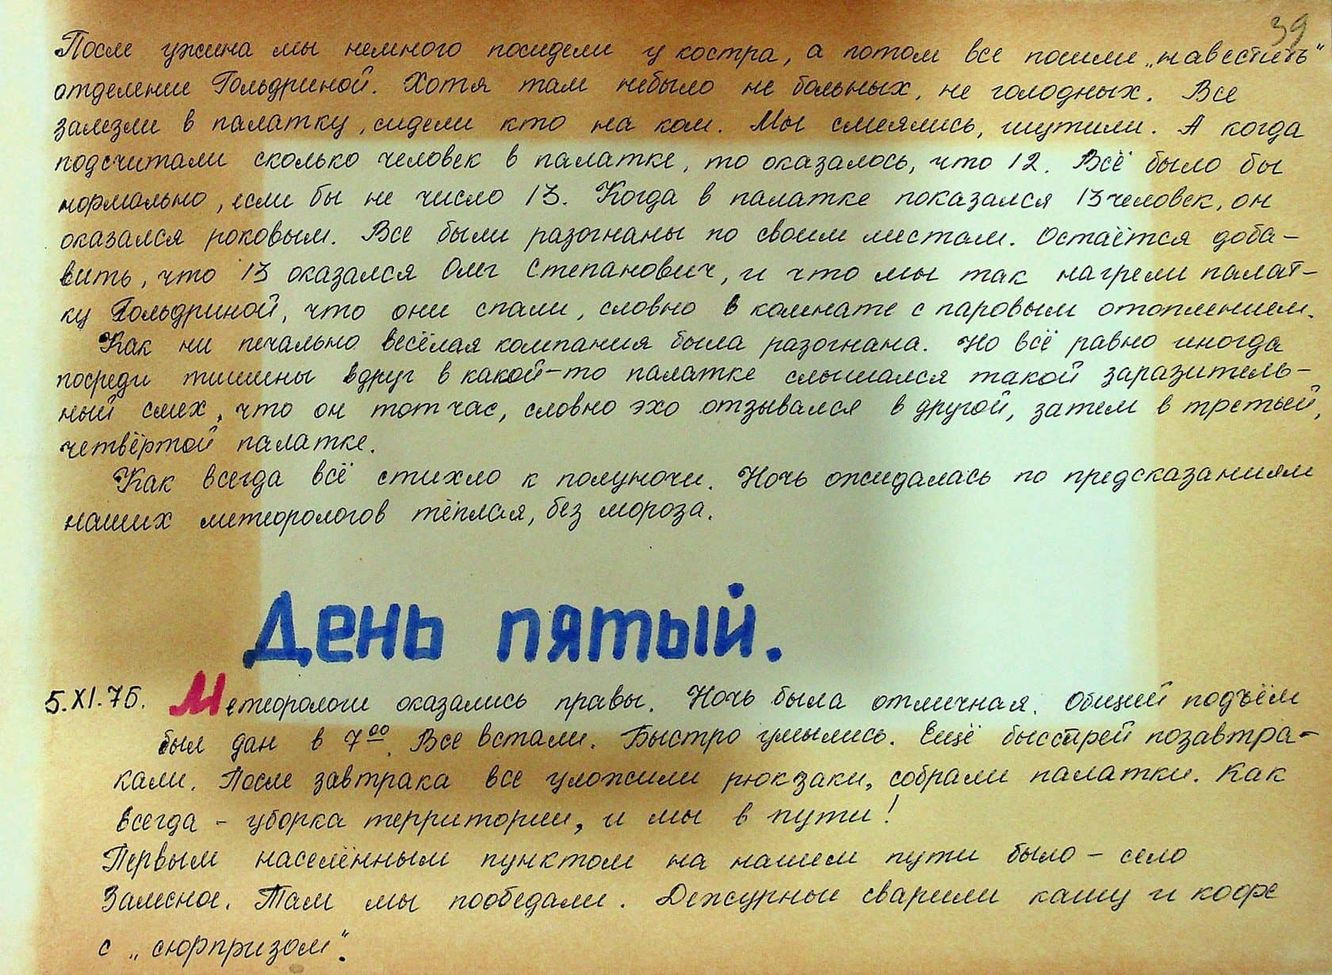 39
После ужина мы немного посидели у костра, а потом все пошли „навестить“
отделение Гольдриной. Хотя там небыло не больных, не голодных. Все
залезли в палатку, сидели кто на ком. Мы смеялись, шутили. А когда
подсчитали сколько человек в палатке, то оказалось, что 12. Всё было бы
нормально, если бы не число 13. Когда в палатке показался 13 человек, он
оказался роковым. Все были разогнаны по своим местам. Остаётся доба-
вить, что 13 оказался Олег Степанович, и что мы так нагрели палат-
ку Гольдриной, что они спали, словно в комнате с паровым отоплением.
Как ни печально весёлая компания была разогнана. Но всё равно иногда
посреди тишины вдруг в какой-то палатке слышался такой заразитель-
ный смех, что он тотчас, словно эхо отзывался в другой, затем в третьей,
четвёртой палатке.
Как всегда всё стихло к полуночи. Ночь ожидалась по предсказаниям
наших метеорологов тёплая, без мороза.
День пятый.
5.XI.75. Метеорологи оказались правы. Ночь была отличная. Общий подъём
был дан в 7⁰⁰. Все встали. Быстро умылись. Ещё быстрей позавтра-
кали. После завтрака все уложили рюкзаки, собрали палатки. Как
всегда - уборка территории, и мы в пути!
Первым населённым пунктом на нашем пути было - село
Залесное. Там мы пообедали. Дежурные сварили кашу и кофе
с „сюрпризом“.